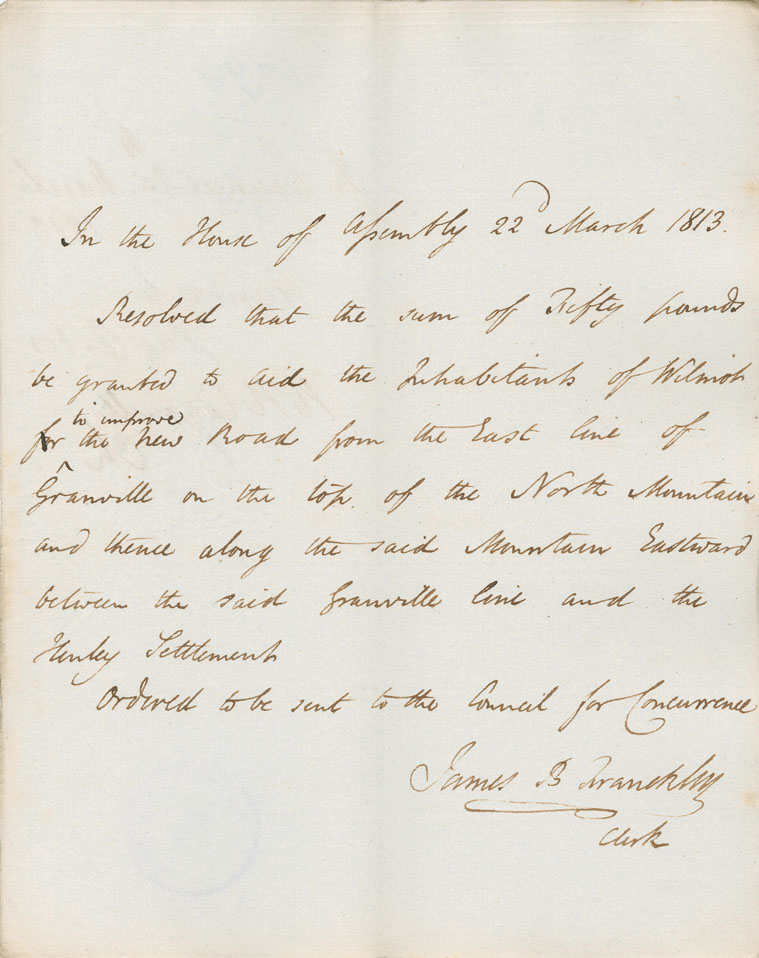 In the House of Assembly 22d March 1813.
Resolved that the sum of Fifty pounds
be granted to aid the Inhabitants of Wilmot
to improve
for the New Road from the East line of
Granville on the top of the North Mountain
and thence along the said Mountain Eastward
between the said Granville line and the
Henley Settlement
Ordered to be sent to the Council for Concurrence
James B Franckly
Clerk